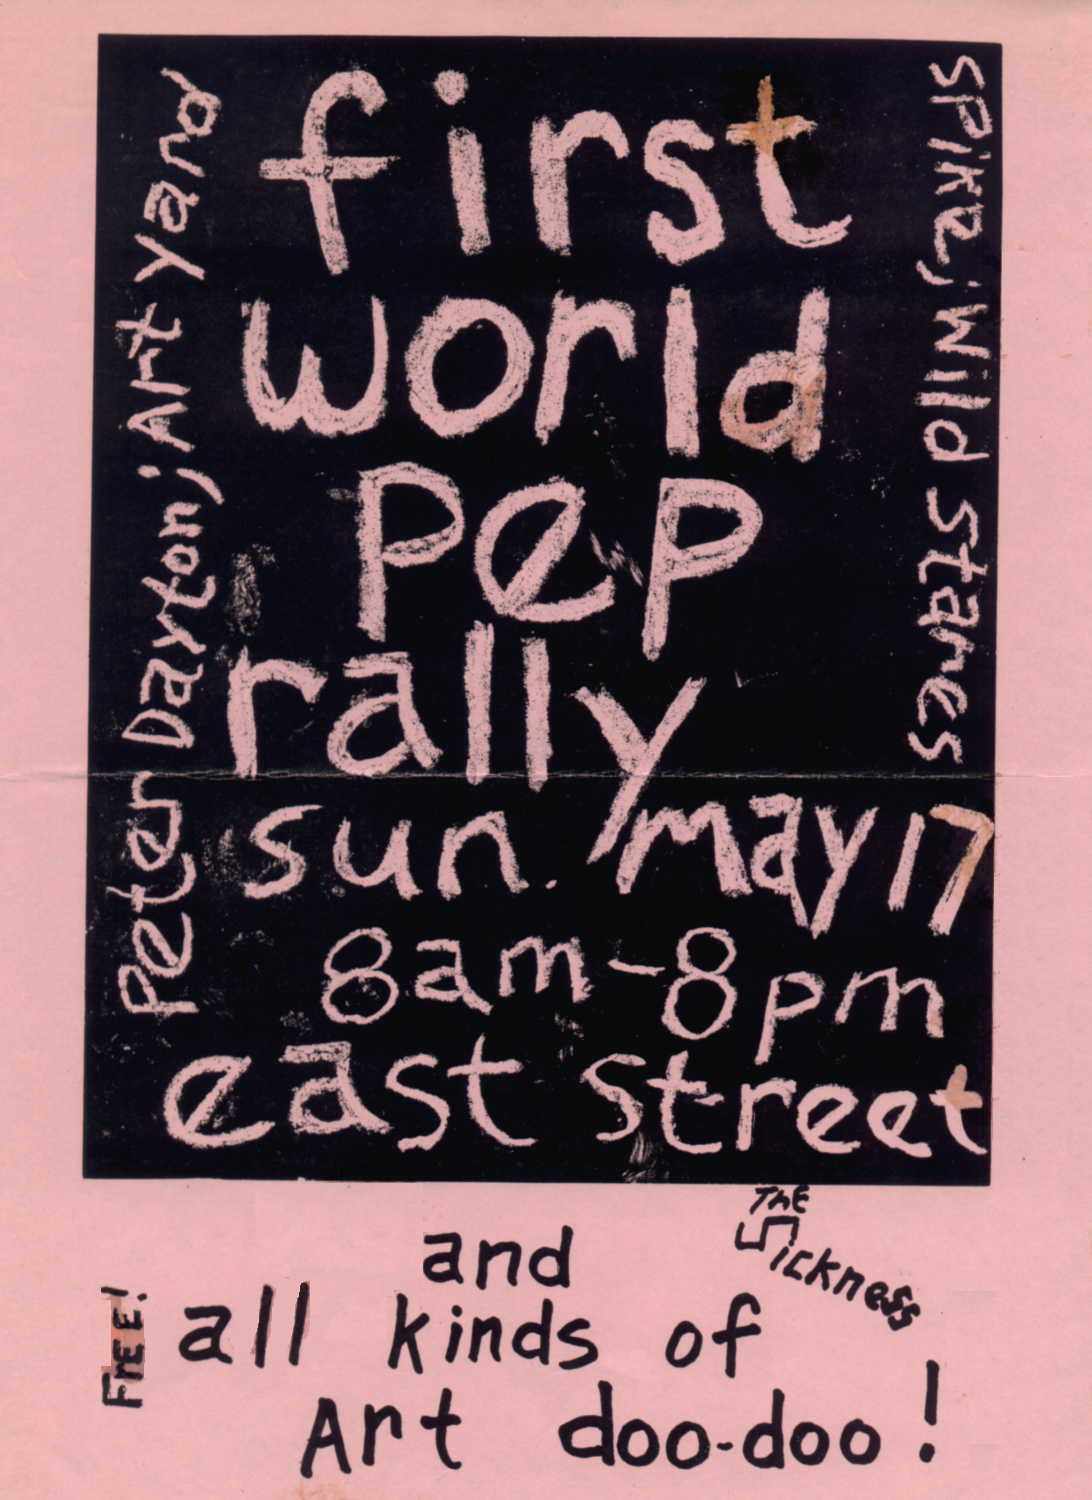 first
world
pep
rally
sun. may 17
8am-8pm
east street
Peter Dayton; Art Yard
Spike; Wild Stares
The
Sickness
and
all kinds of
Art doo-doo!
Free!